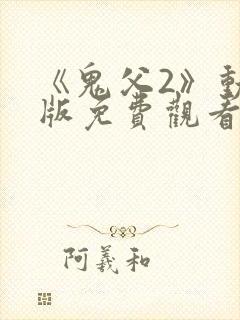 《鬼父2》動
版免費觀看
阿羲和